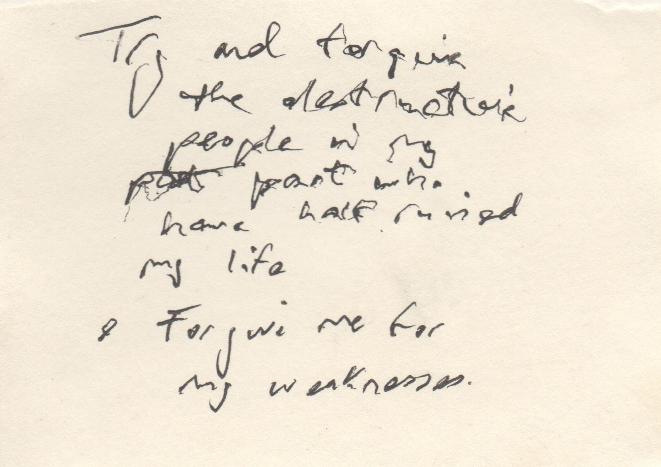 Try and forgive
the destructive
people in my
past who
have half ruined
my life
& Forgive me for
my weaknesses.